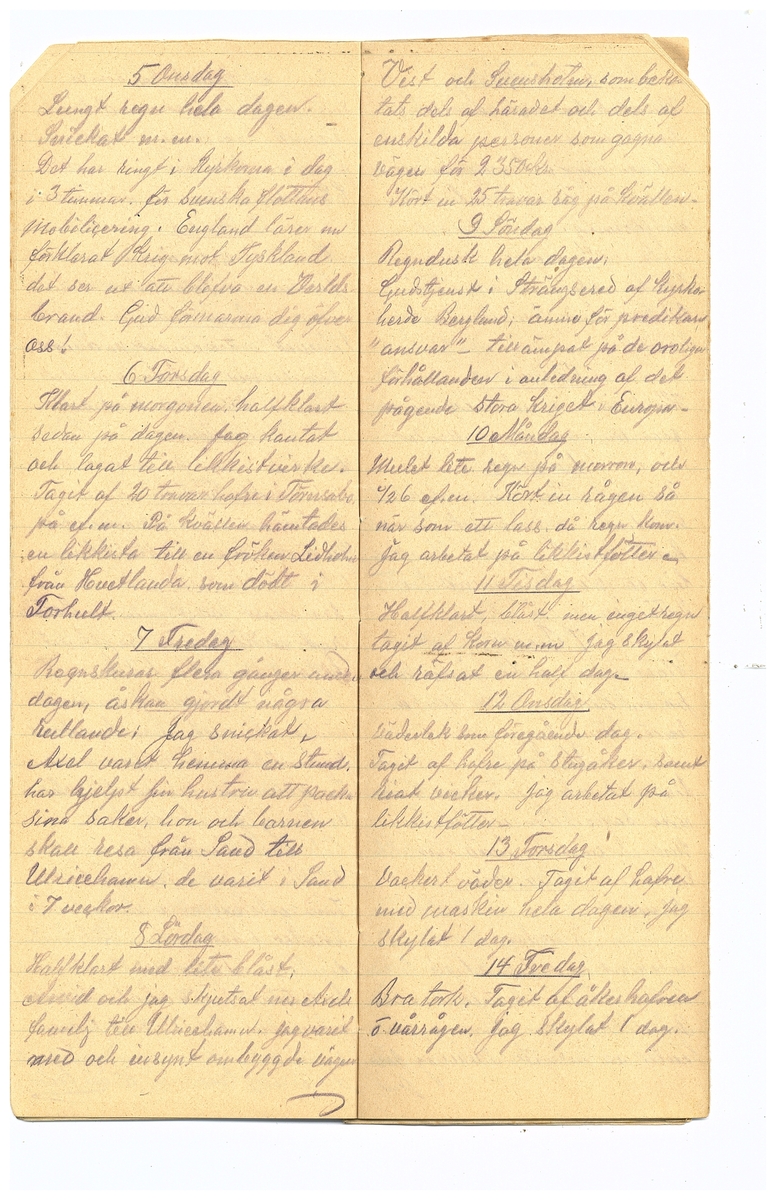 5 Onsdag
Lungt regn hela dagen.
Snickat m.m.
Det har ringt i Kyrkorna i dag
i 3 timmar. för svenska flottans
Mobolicering. England lärer nu
förklarat Krig mot Tyskland
det ser ut att blefva en Verlds
brand. Gud förbarma dig öfver
oss!
6 Torsdag
Klart på morgonen, halfklart
sedan på dagen. Jag kantat
och lagat till likkistvirke.
Tagit af 20 travar hafre i
på ef.m. På kvällen hämtades
en likkista till en fröken Lidholm
från Hvetlanda som dödt i
Torhult.
7 Fredag
Regnskurar flera gånger under
dagen, åskan gjordt några
rullande; Jag snickat,
Axel varit hemma en stund.
har hjelpt sin hustru att packa
sina saker, hon och barnen
skall resa från Sand till
Ulricehamn. de varit i Sand
i 7 veckor.
8 Lördag
Halfklart med lite blåst,
Arvid och jag skjutsat ner Axels
familj till Ulricehamn. jag varit
med och insynt ombyggde vägen
Vist och Svensholm, som beko
tats dels af häradet och dels af
enskilda personer som gagna
vägen för 2350 kr.
Kört in 25 travar råg på kvällen-
9 Söndag
Regndusk hela dagen;
Gudstjenst i Strängsered af kyrko
herde Bergland; ämne för predikan
"ansvar"- tillämpat på de oroliga
förhållanden i anledning af det
pågende stora kriget i Europa-
10 Måndag
Mulet lite regn på morron, och
4/26 ef.m. Kört in rågen så
när som ett lass. då regn kom.
Jag arbetat på likkistfötter-
11 Tisdag
Halfklart, blåst men inget regn
tagit af Korn m.m Jag skylat
och räfsat en half dag-
12 Onsdag
väderlek som föregående dag.
Tagit af hafre på Stugåker, samt
vicker. Jag arbetat på
likkistfötter-
13 Torsdag
Vackert väder. Tagit af hafre
med maskin hela dagen. Jag
skylat 1 dag.
14 Fredag
Bra tork. Tagit af åkerhafren
o vårrågen. Jag skylat 1 dag.